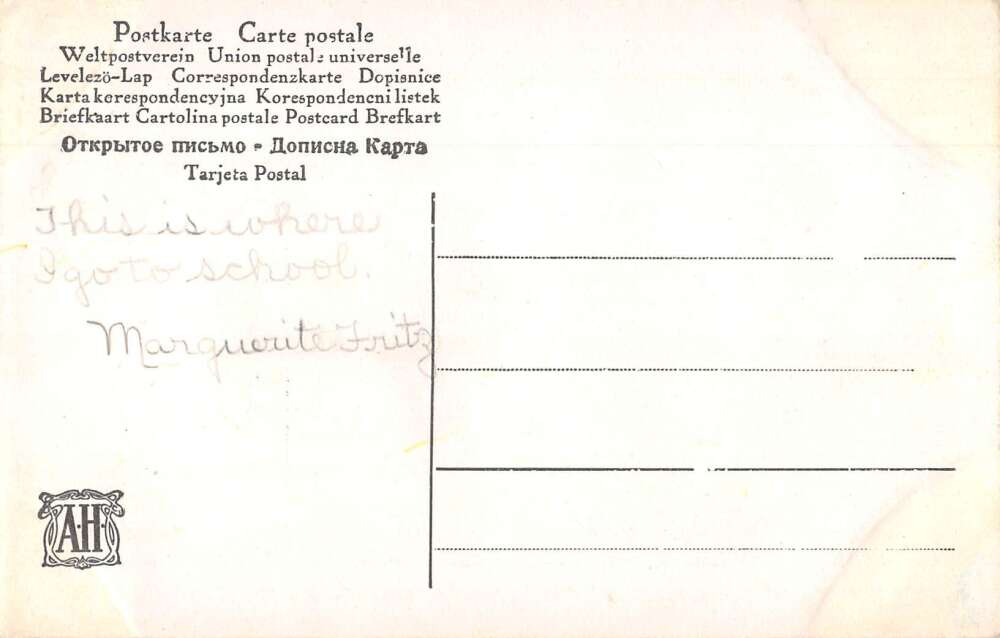 Postkarte Carte postale
Weltpostverein Union postale universelle
Levelezö-Lap Correspondenzkarte Dopisnice
Karta korespondencyjna Korespondencni listek
Briefkaart Cartolina postale Postcard Brefkart
Открытое письмо - Дописна Карта
Tarjeta Postal
This is where
I go to school.
Marguerite Fritz
A.H.